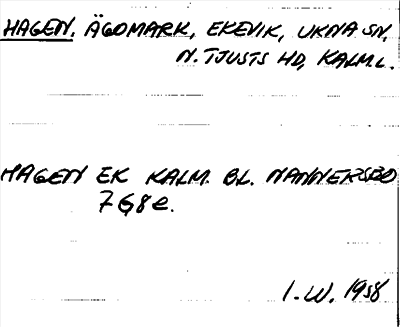 HAGEN, ÄGOMARK, EKEVIK, UKNA SN,
N. TJUSTS HD, KALM.L.
HAGEN EK KALM. BL. NANNEKSBO
7G8e.
I.W. 1958